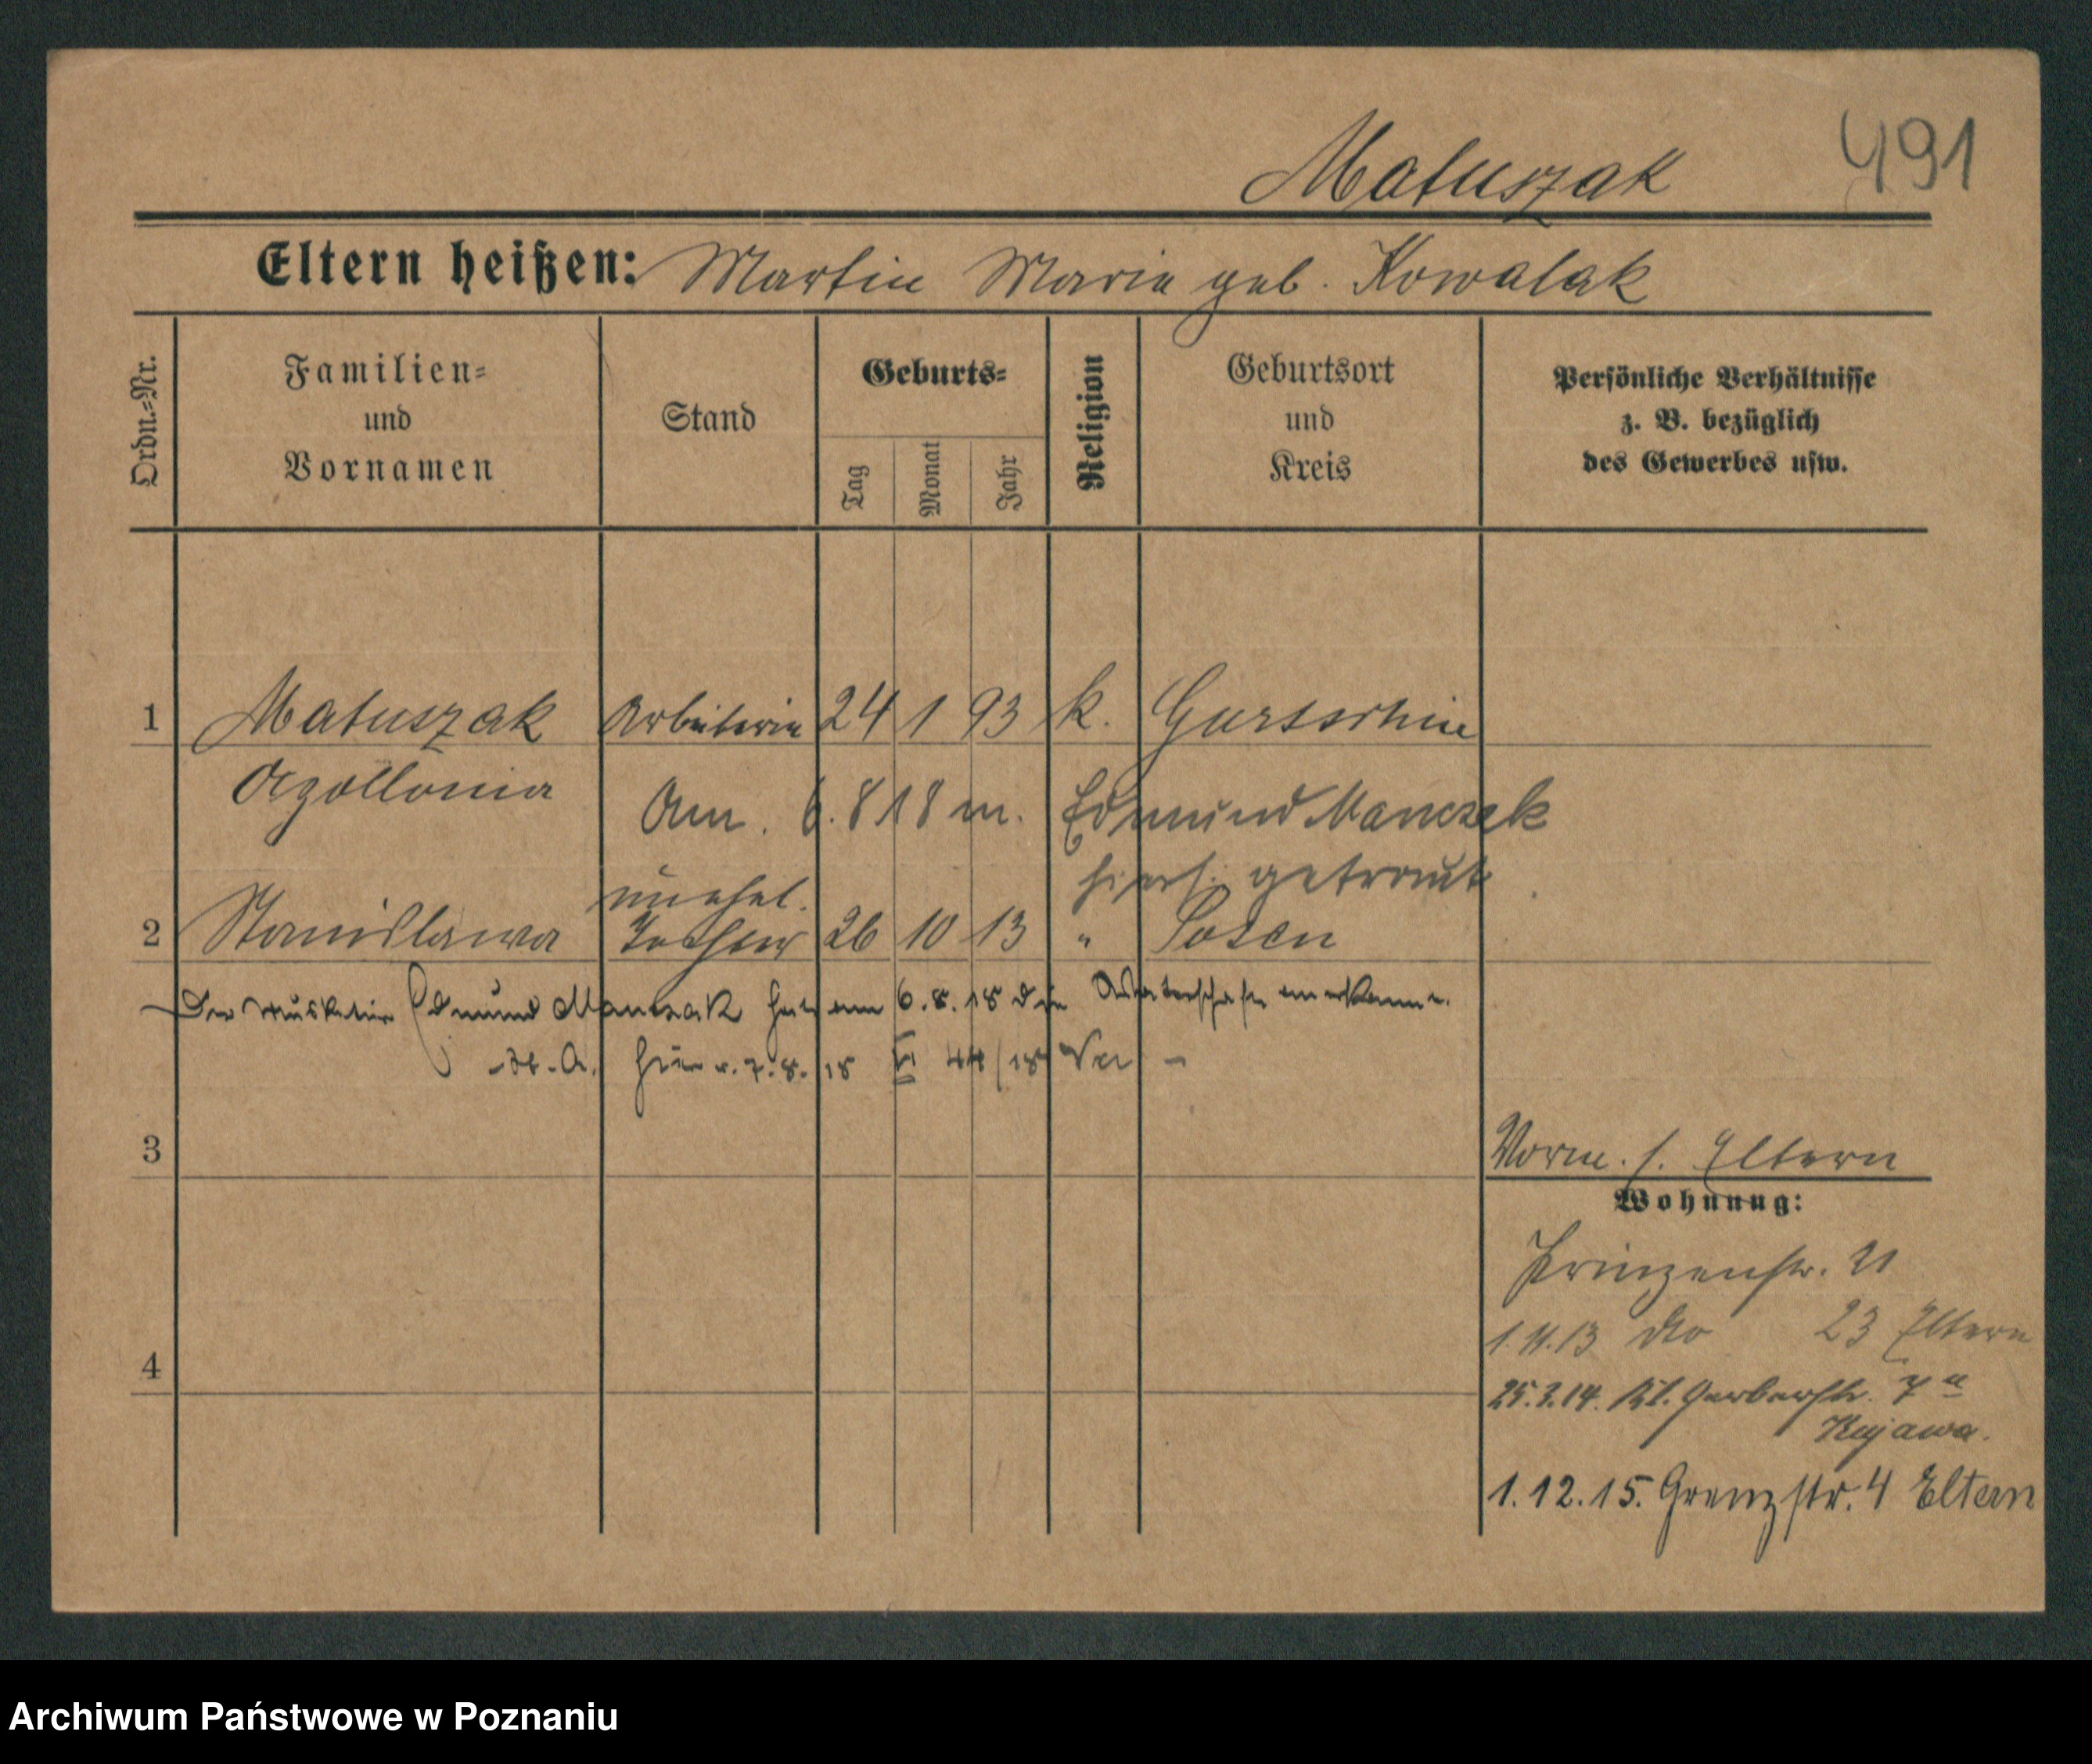 491
Matuszak
Eltern heißen: Martin Marie geb. Kowalak
Ordn.=Nr.
Familien=
und
Vornamen
Stand
Geburts=
Tag
Monat
Jahr
Religion
Geburtsort
und
Kreis
Persönliche Verhältnisse
z. B. bezüglich
des Gewerbes usw.
1 Matuszak Arbeiterin 24 1 93 k. Gurtschin
Apollonia
Am. 6.8 18 m. Edmund Manczak
hiers. getraut
unehel.
2 Stanislawa Tochter 26 10 13 " Posen
Der Musketier Edmund Manczak hat am 6.8.18 die Vaterschaft anerkannt.
St. A. hier v. 7.8.18 44/18
3
Vorm. s. Eltern
Wohnung:
Prinzenstr. 21
1.11.13 dto 23 Eltern
4
25.3.14. Kl. Gerberstr. 7a
Kujawa.
1.12.15. Grenzstr. 4 Eltern
Archiwum Państwowe w Poznaniu